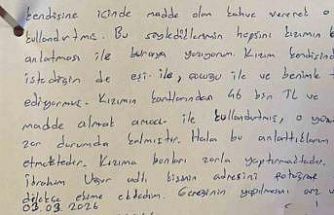 kendisine içinde madde olan kahve vererek o
kullandırtmış. Bu söylediklerimin hepsini kızımın b
anlatması ile buraya yazıyorum. Kızım kendisind
istediğin de eşi ile, çocuğu ile ve benimle
ediyormuş. Kızımın kartlarından 46 bin TL ve
madde almak amacı ile kullandırtmış, o yüzd
zor durumda kalmıştır. Hala bu anlattıkların
etmektedir. Kızıma bunları zorla yaptırmaktadır.
İbrahim Uğur adlı kişinin adresini fotoğraf
dilekçe ekime ekledim. Gereğinin yapılmasını arz
03.03.2026